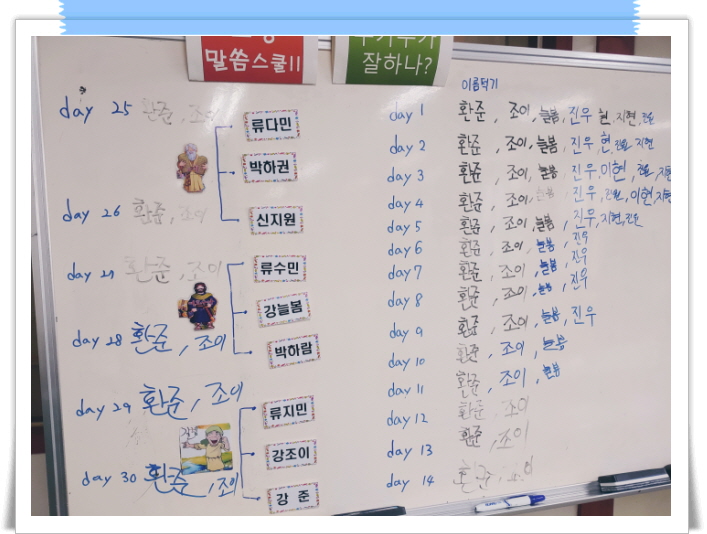 말씀스쿨II
잘하나?
day 25 환준, 조이
류다민
박하권
day 26 환준, 조이
신지원
환준, 조이
류수민
강늘봄
day 28 환준, 조이
박하람
day 29 환준, 조이
류지민
강조이
day 30 환준, 조이
강 준
이름적기
day 1 환준, 조이, 늘봄, 진우, 현, 지현
day 2 환준, 조이, 늘봄, 진우, 현, 지현
day 3 환준, 조이, 늘봄, 진우, 이현
day 4 환준, 조이, 늘봄, 진우, 이현, 지현
day 5 환준, 조이, 늘봄, 진우, 지현
day 6 환준, 조이, 늘봄, 진우
day 7 환준, 조이, 늘봄, 진우
day 8 환준, 조이, 늘봄, 진우
day 9 환준, 조이, 늘봄, 진우
day 10 환준, 조이, 늘봄
day 11 환준, 조이, 늘봄
day 12 환준, 조이
day 13 환준, 조이
day 14 환준, 조이